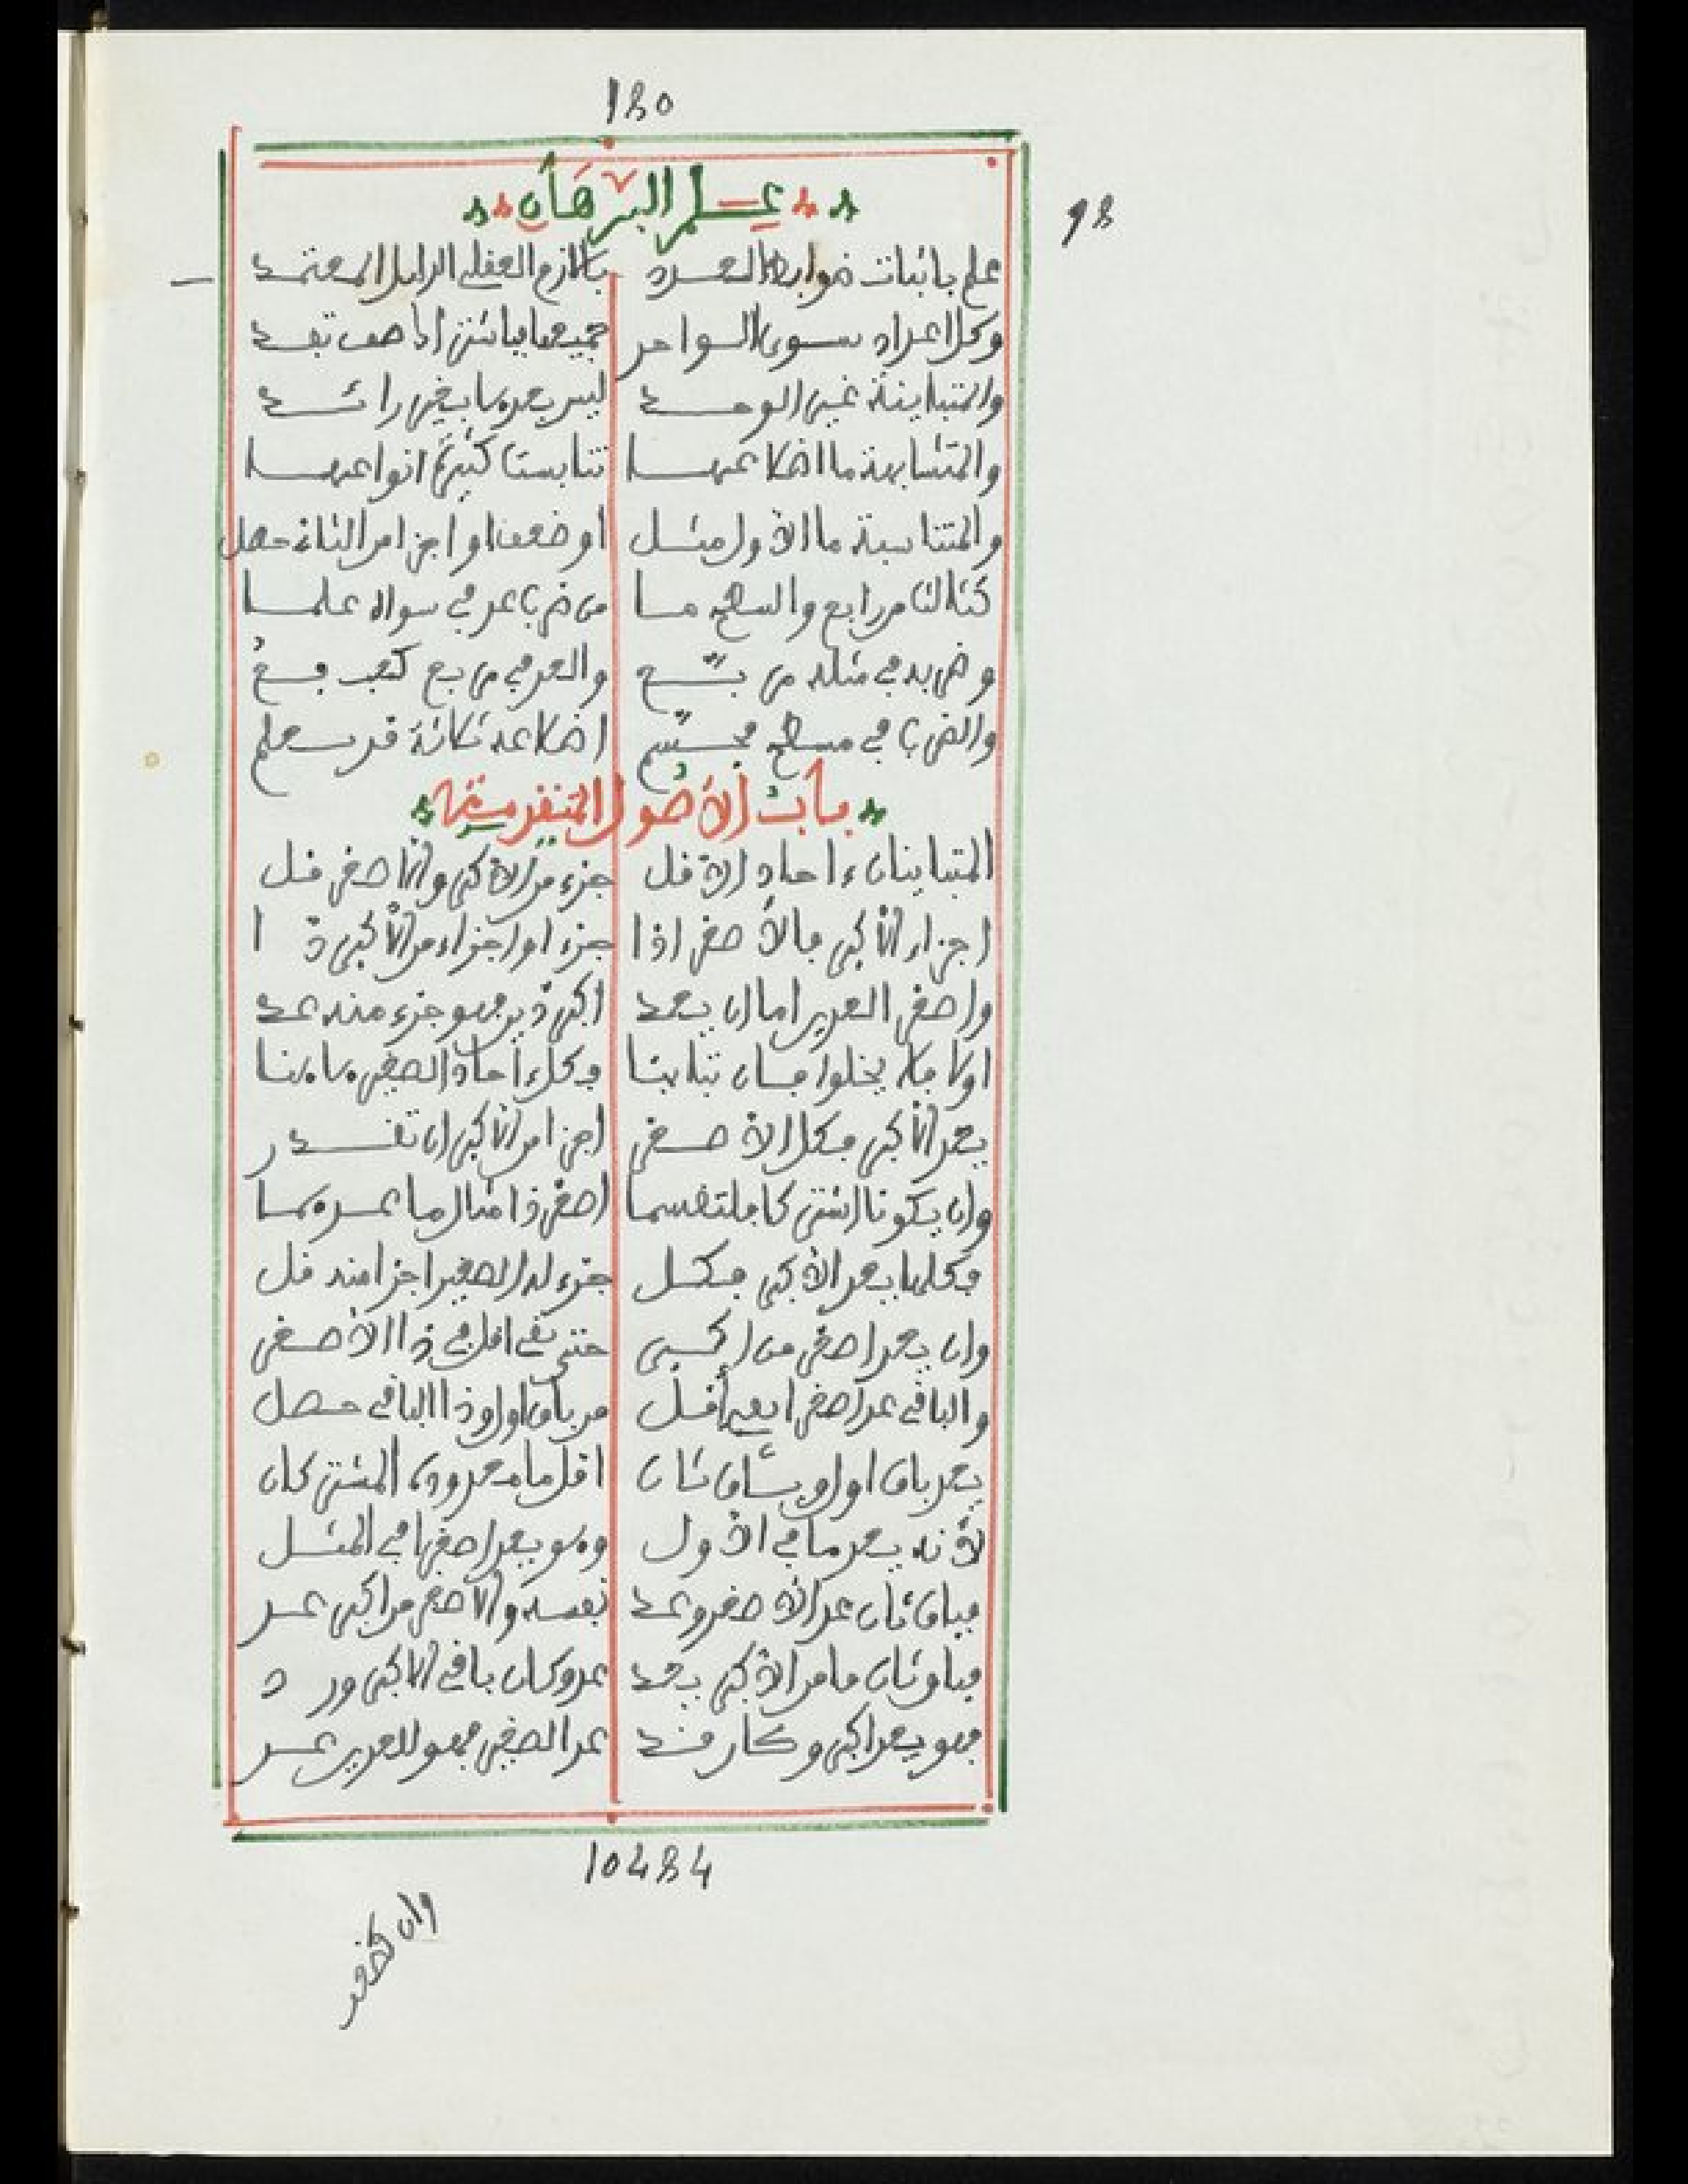 180
98
علم البرهان
علم باثبات ضوابط العدد بالازم العقلي الدليل المعتمد
وكل اعداد سوى الواحد جميعها باثنين
والمتباينة غير الوحد ليس يعدها بغير زائد
والمتشابهة ما اضلاعها تناسبت كثيرة انواعها
والمتناسبة ما الاول مثل او ضعف او اجزا من الثان حصل
كثالث من رابع والسطح ما من ضرب عد في سواه علما
وضربه في مثله مربع والعد في مربع كعب
والضرب في مسطح مجسم اضلاعه ثلاثة قد يعلم
باب الاصول
المتباينان ءاحاد الاقل جزء من الاكبر والاصغر قل
اجزاء الاكبر فالاصغر اذا جزء او اجزاء من الاكبر ذ ا
واصغر العددين اما ان يعد اكبر ذين فهو جزء منه عد
اولا فلا يخلوا فان تباينا فكل ءاحاد الصغير هاهنا
يعد الاكبر فكل الاصغر اجزا من الاكبر ان تقدر
وان يكونا اشتركا فلتقسما اصغر ذا امثال ما عدهما
فكلها يعد الاكبر فكل جزء له الصغير اجزا منه قل
وان يعد اصغر من اكبر حتى بقي اقل في ذا الاصغر
والباقي عد اصغر ابقي أقل من باق اول وذا الباقي حصل
يعد باق اول وباق ثان اقل ما معدود المشترك ان
لأنه يعد ما في الاول وهو يعد اصغرا في المثل
فباق ثان عد الاصغر وعد نفسه والاصغر من اكبر عد
فباق ثان ما من الاكبر يعد عد وكان باقي الاكبر ور د
فهو يعد اكبر وكان قد عد الصغير فهو للعددين عد
10484